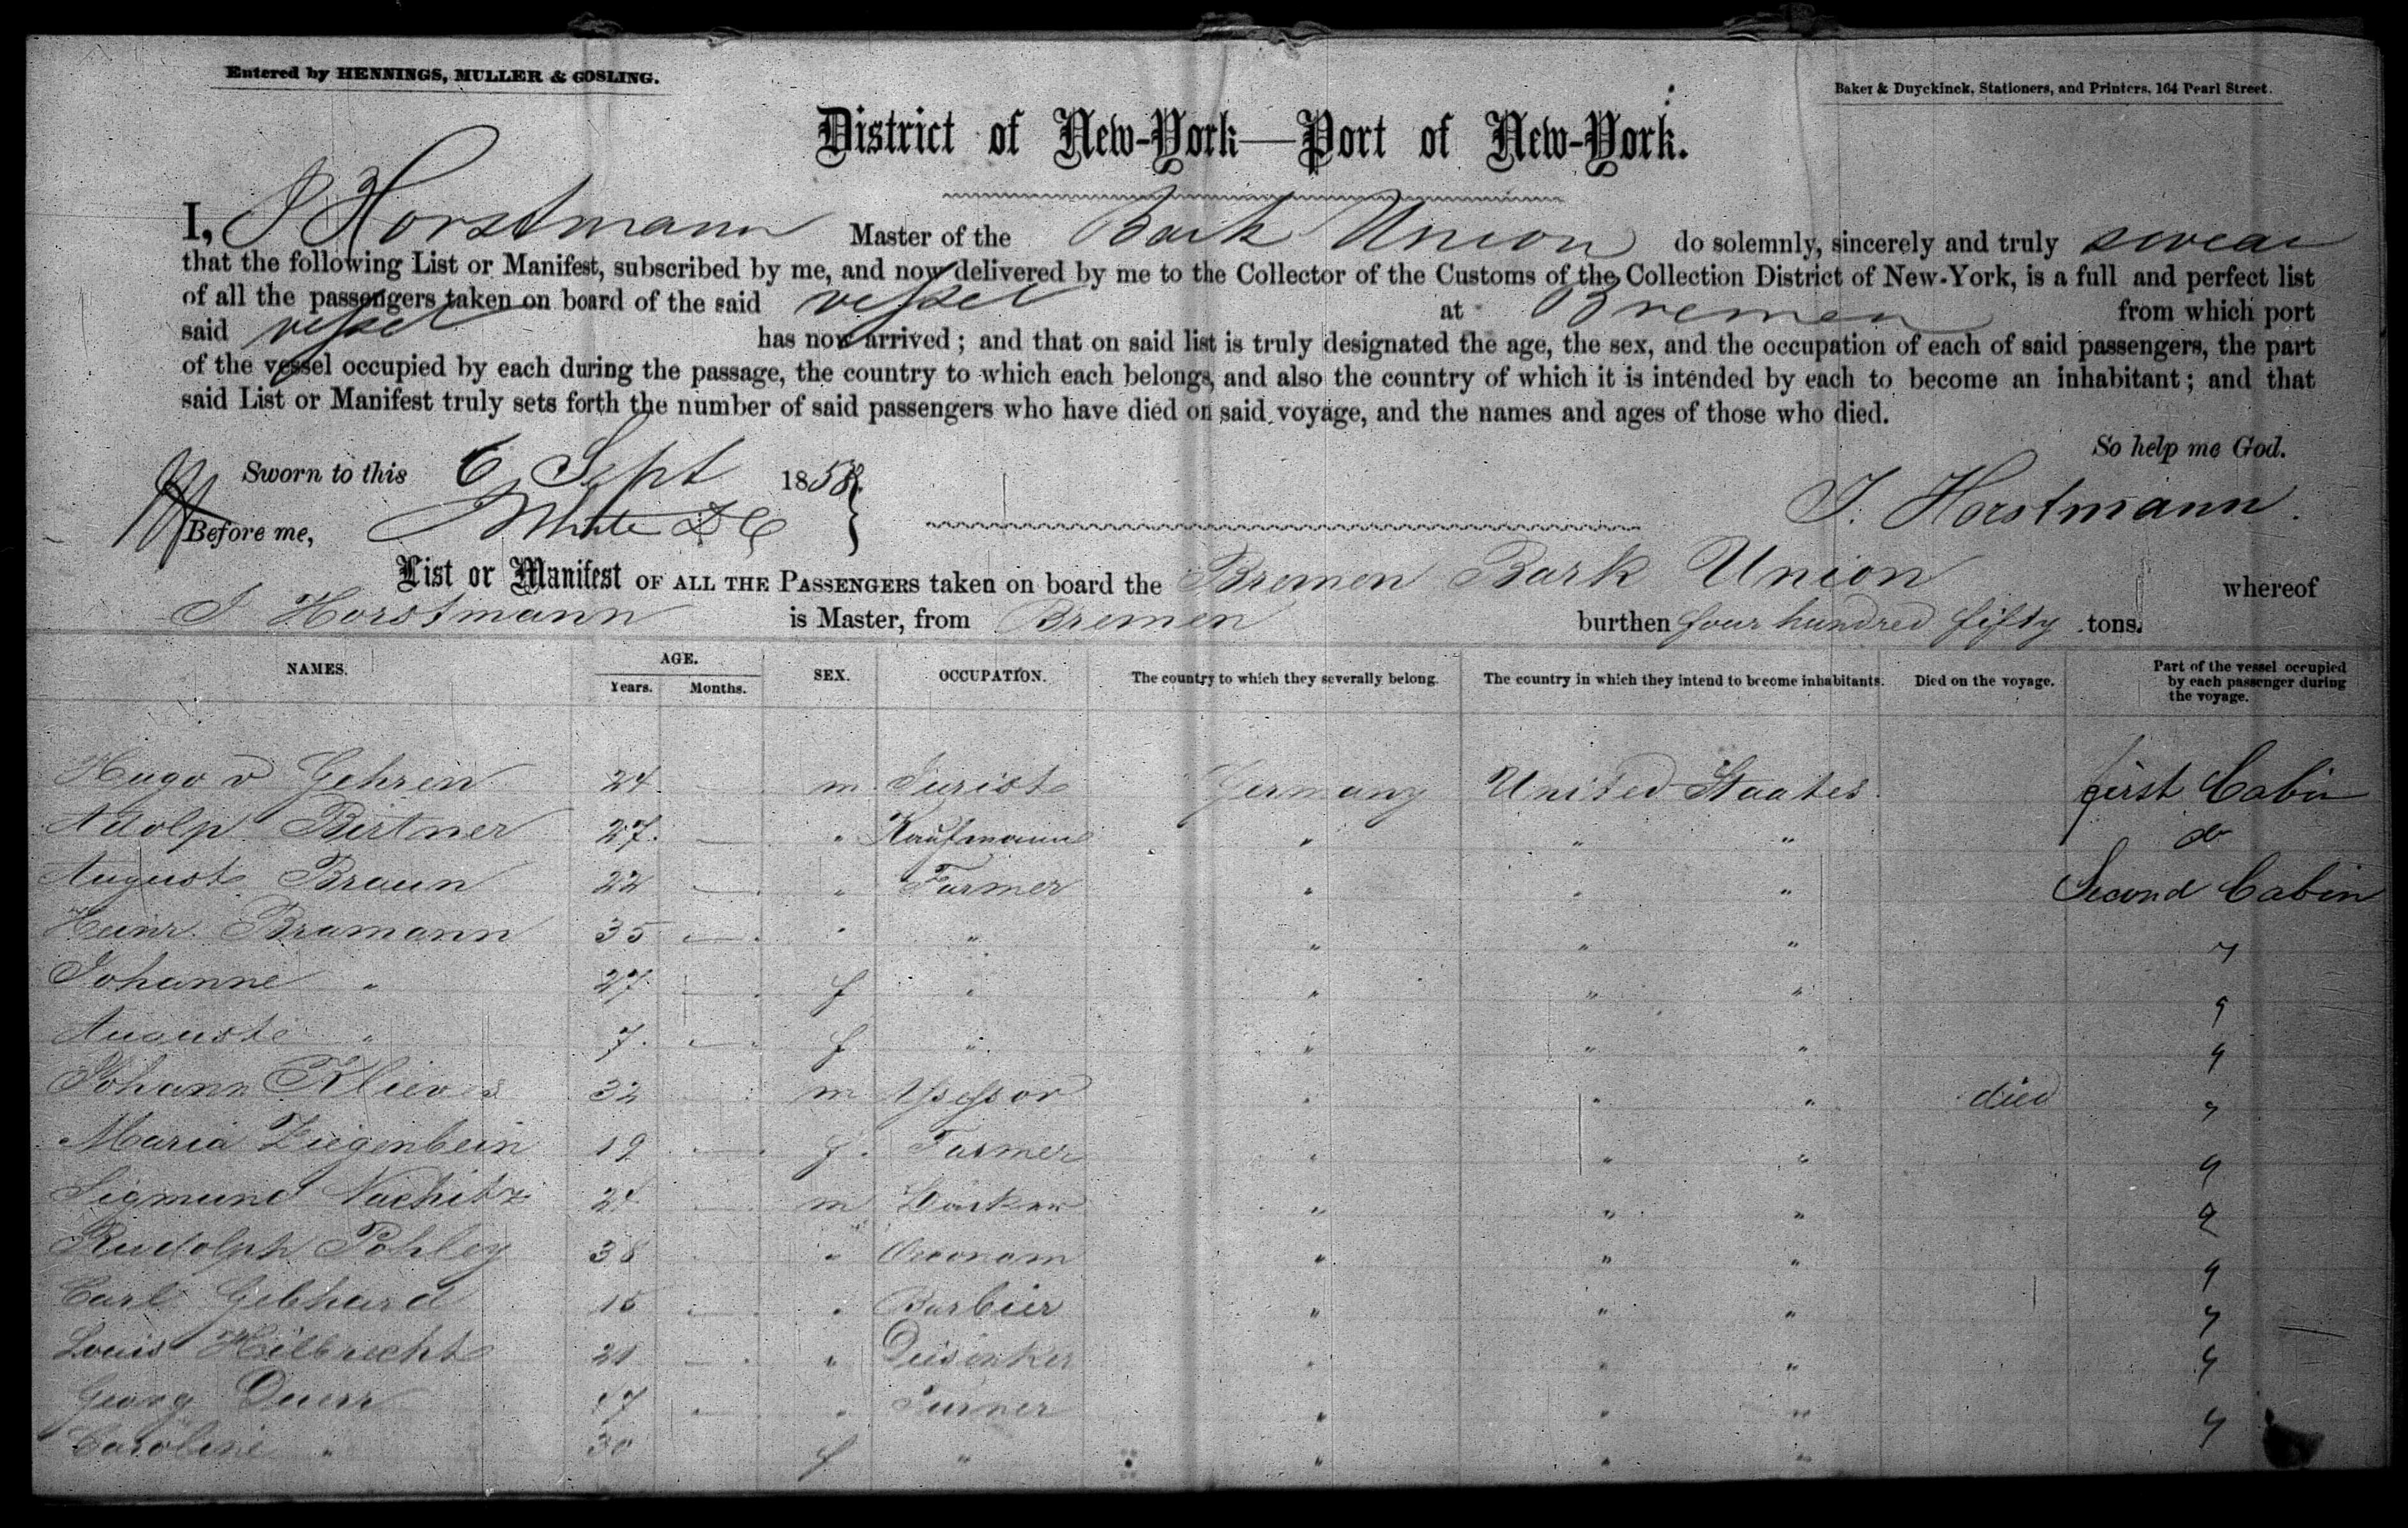 Entered by HENNINGS, MULLER & GOSLING.
Baker & Duyckinck, Stationers, and Printers, 164 Pearl Street.
District of New-York—Port of New-York.
I, J Horstmann Master of the Bark Union do solemnly, sincerely and truly swear
that the following List or Manifest, subscribed by me, and now delivered by me to the Collector of the Customs of the Collection District of New-York, is a full and perfect list
of all the passengers taken on board of the said vessel at Bremen from which port
said vessel has now arrived; and that on said list is truly designated the age, the sex, and the occupation of each of said passengers, the part
of the vessel occupied by each during the passage, the country to which each belongs, and also the country of which it is intended by each to become an inhabitant; and that
said List or Manifest truly sets forth the number of said passengers who have died on said voyage, and the names and ages of those who died.
So help me God.
Sworn to this 6 Sept 1858.
Before me, White D C
J. Horstmann.
List or Manifest OF ALL THE PASSENGERS taken on board the Bremen Bark Union whereof
J Horstmann is Master, from Bremen burthen four hundred fifty tons.
NAMES. AGE. Years. Months. SEX. OCCUPATION. The country to which they severally belong. The country in which they intend to become inhabitants. Died on the voyage. Part of the vessel occupied by each passenger during the voyage.
Hugo v Gehren 24 — m Jurist Germany United Staates first Cabin
Adolp Birtner 27. — " Kaufmann " " " do
August Braun 22 — " Farmer " " " Second Cabin
Heinr. Bramann 35 — " " " " "
Johanne " 27 — f " " " "
Auguste " 7. — f " " " "
Johann Klieves 32 m Assessor " " " died
Maria Ziegenbein 19 — f. Farmer " " "
Sigmund Nachitz 24 m " " "
Rudolph Pohley 38 " Oeconom " " "
Carl Gebhard 15 — " Barbier " " "
Louis Hilbrecht 21 — " " " "
Georg Duerr 17 — " Turner " " "
Caroline " 30 f " " " "